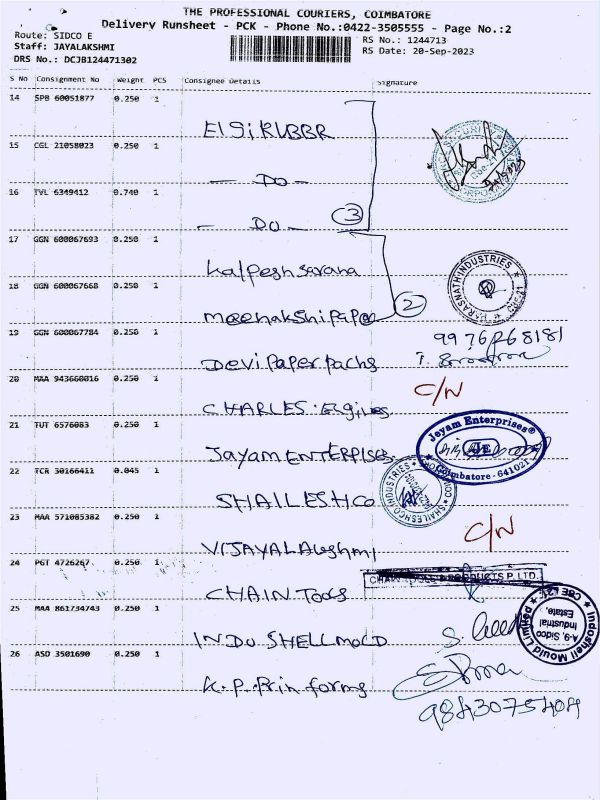 THE PROFESSIONAL COURIERS, COIMBATORE
Delivery Runsheet - PCK - Phone No.:0422-3505555 - Page No.:2
Route: SIDCO E
RS No.: 1244713
Staff: JAYALAKSHMI
RS Date: 20-Sep-2023
DRS No.: DCJB124471302
S No Consignment No Weight PCS Consignee Details Signature
14 SPB 60051877 0.250 1
ELGi RUBBR
15 CGL 21058023 0.250 1
— Do —
16 TVL 6349412 0.740 1
— Do — 3
17 GGN 600067693 0.250 1
Kalpesh sarana
PARASNATH INDUSTRIES CBE-21
18 GGN 600067668 0.250 1
meenakshi pape 2
19 GGN 600067784 0.250 1
9976268181
Devi Paper packs
20 MAA 943660016 0.250 1
C/N
CHARLES
21 TUT 6576083 0.250 1
Jayam ENTERPISES
Jeyam Enterprises® JE Coimbatore - 641021
22 TCR 50166411 0.045 1
SHAILESHCO
SHAILESHCO INDUSTRIES
23 MAA 571085382 0.250 1
C/N
VIJAYALAkshmi
24 PGT 4726267 0.250 1
CHAIN TOOLS
PRODUCTS P. LTD.
25 MAA 861734743 0.250 1
INDO SHELL MOLD
Indoshell Mould Limited A-9, Sidco Industrial Estate, CBE-21
26 ASD 3501690 0.250 1
K.P. Prin forms